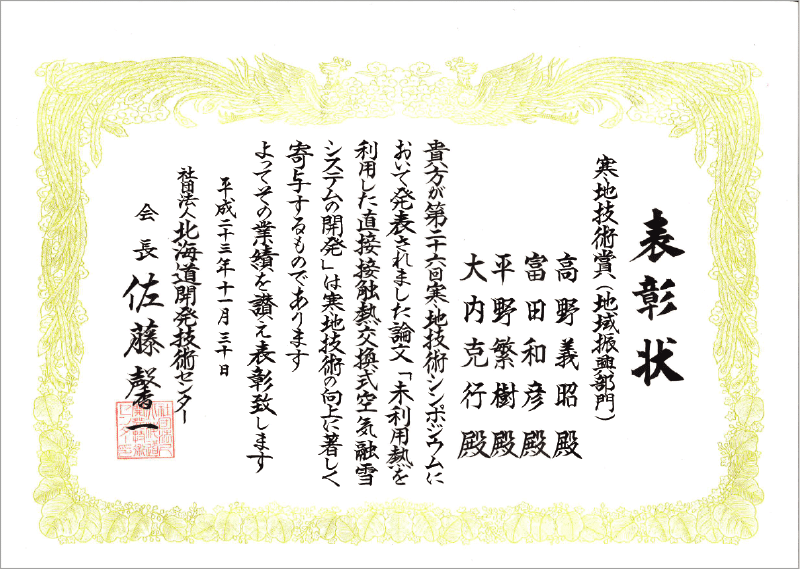 表彰状
寒地技術賞(地域振興部門)
高野義昭殿
富田和彦殿
平野繁樹殿
大内克行殿
貴方が第二十六回寒地技術シンポジウムに
おいて発表されました論文「未利用熱を
利用した直接接触熱交換式空気融雪
システムの開発」は寒地技術の向上に著しく
寄与するものであります
よってその業績を讃え表彰致します
平成二十三年十一月三十日
社団法人北海道開発技術センター
会長 佐藤馨一